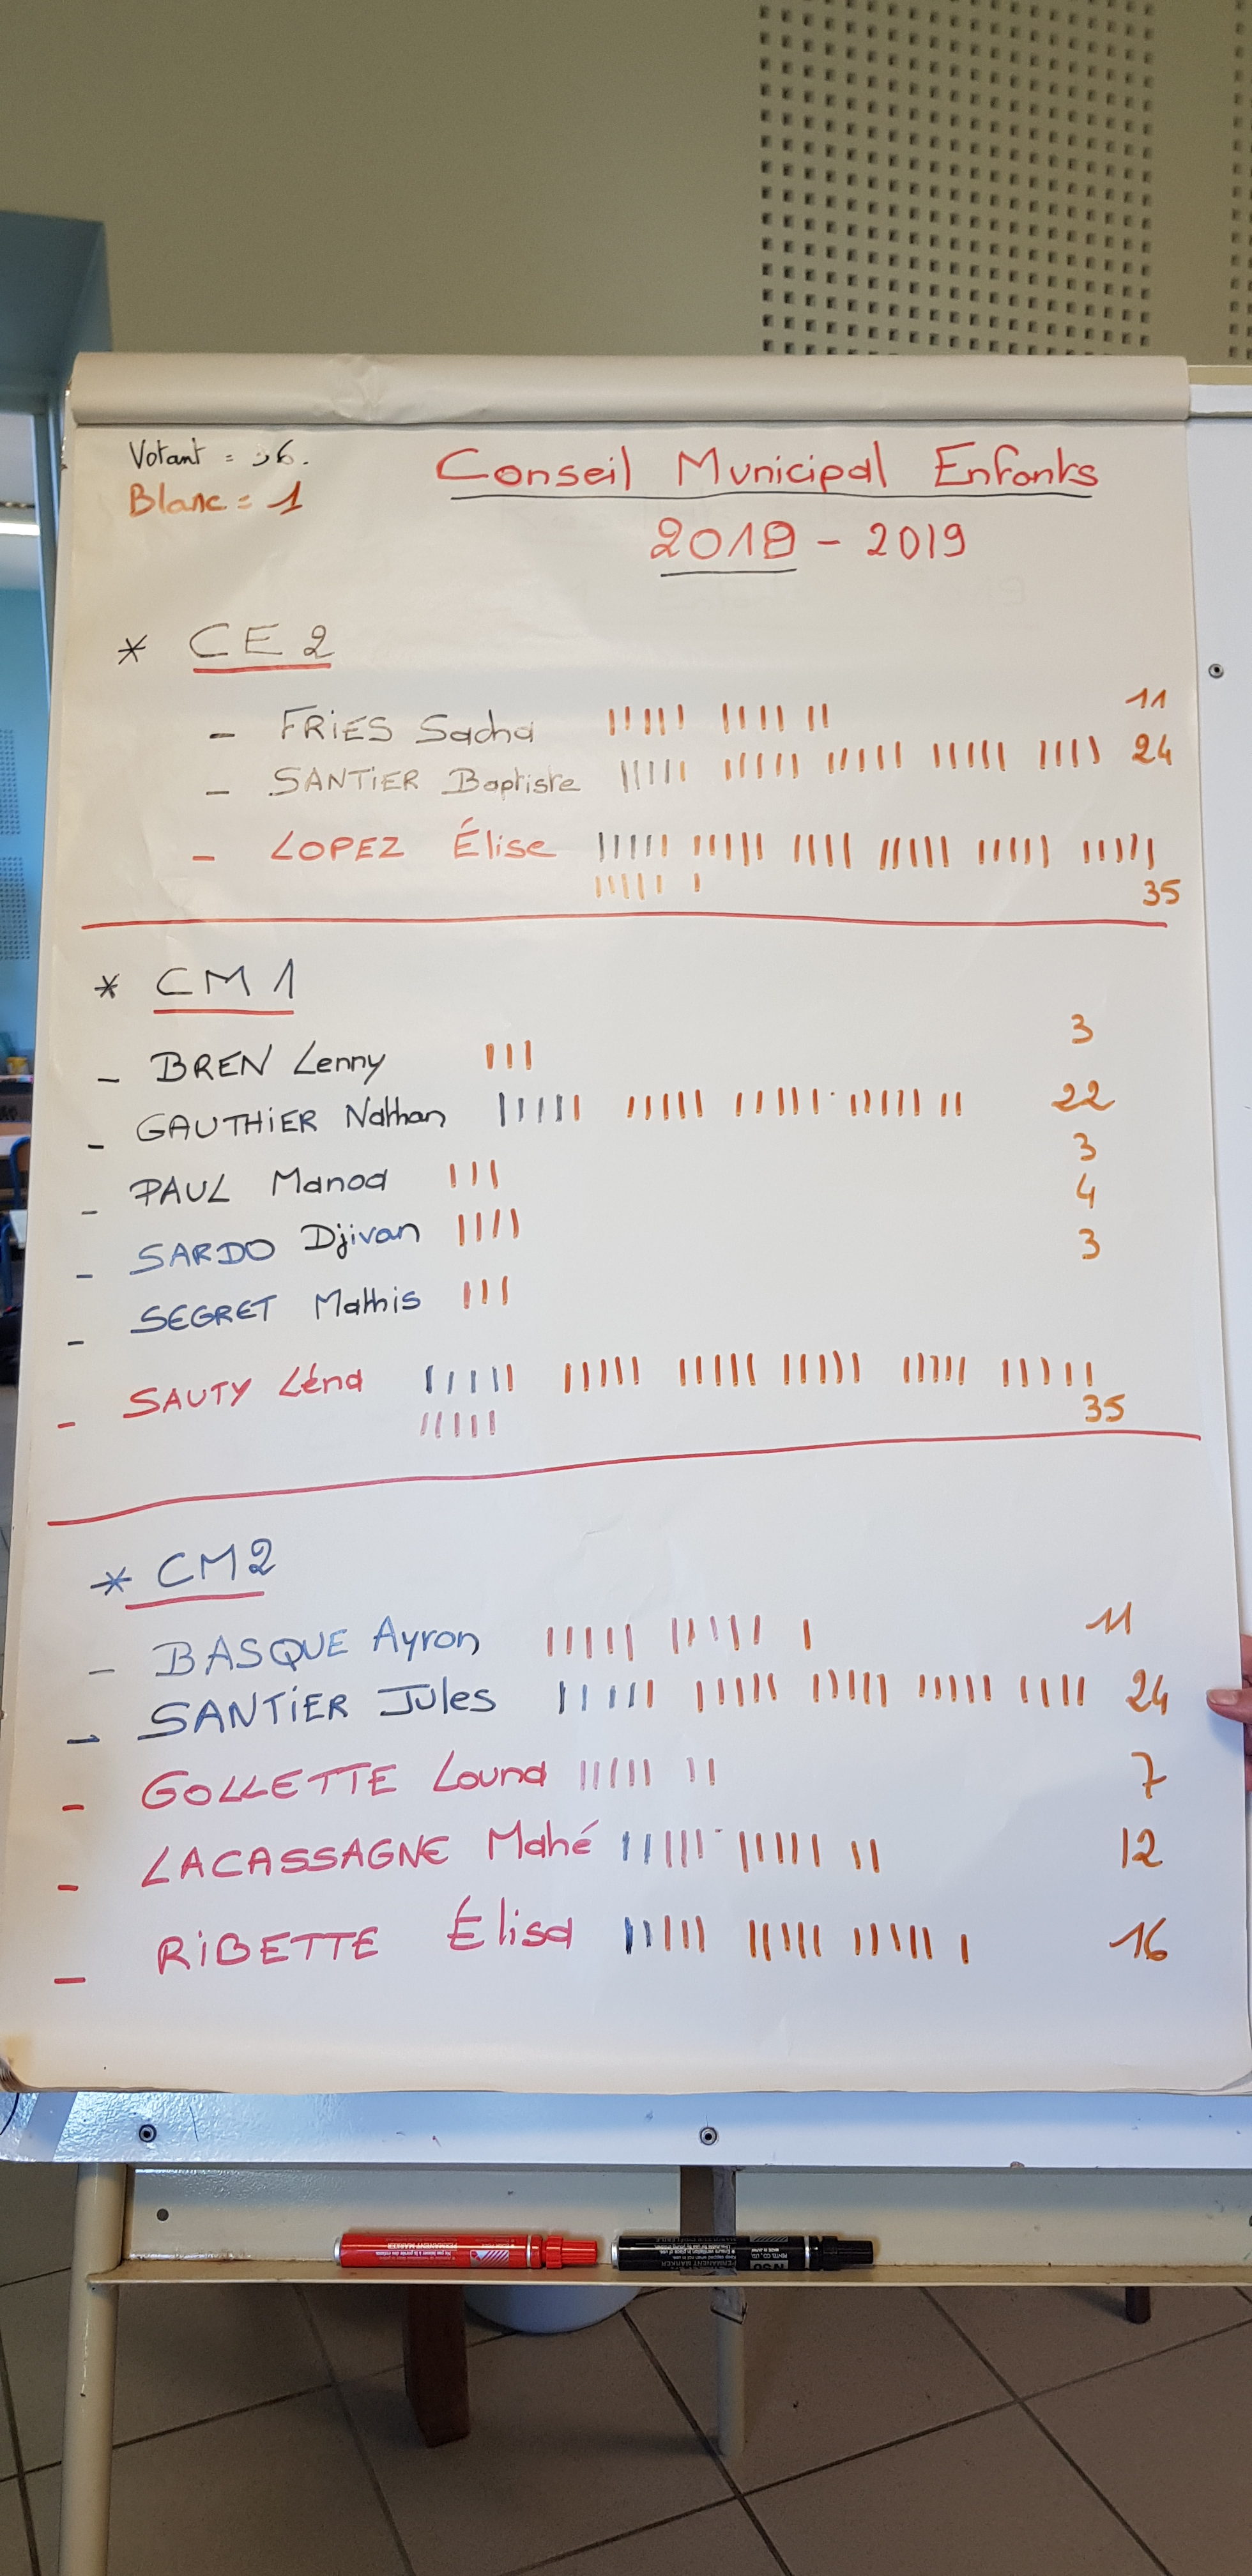 Votant = 36.
Blanc = 1
Conseil Municipal Enfants
2018 - 2019
* CE2
- FRIES Sacha 11
- SANTIER Baptiste 24
- LOPEZ Élise 35
* CM1
- BREN Lenny 3
- GAUTHIER Nathan 22
- PAUL Manoa 3
- SARDO Djivan 4
- SEGRET Mathis 3
- SAUTY Léna 35
* CM2
- BASQUE Ayron 11
- SANTIER Jules 24
- GOLLETTE Louna 7
- LACASSAGNE Mahé 12
- RIBETTE Élisa 16
PERMANENT MARKER